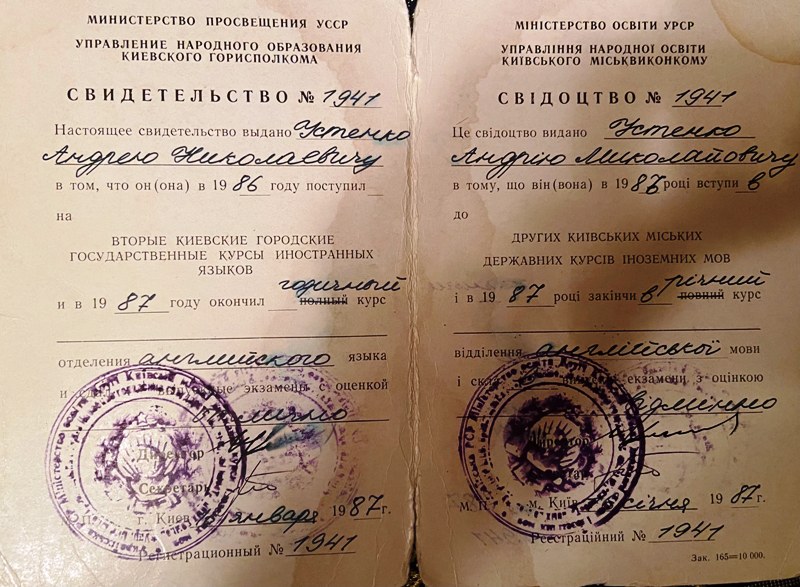 МИНИСТЕРСТВО ПРОСВЕЩЕНИЯ УССР
УПРАВЛЕНИЕ НАРОДНОГО ОБРАЗОВАНИЯ
КИЕВСКОГО ГОРИСПОЛКОМА
СВИДЕТЕЛЬСТВО № 1941
Настоящее свидетельство выдано Устенко
Андрею Николаевичу
в том, что он (она) в 1986 году поступил
на
ВТОРЫЕ КИЕВСКИЕ ГОРОДСКИЕ
ГОСУДАРСТВЕННЫЕ КУРСЫ ИНОСТРАННЫХ
ЯЗЫКОВ
годичный
и в 1987 году окончил полный курс
отделения английского языка
экзамены с оценкой
Директор
Секретарь
г. Киев января 1987 г.
Регистрационный № 1941
МІНІСТЕРСТВО ОСВІТИ УРСР
УПРАВЛІННЯ НАРОДНОЇ ОСВІТИ
КИЇВСЬКОГО МІСЬКВИКОНКОМУ
СВІДОЦТВО № 1941
Це свідоцтво видано Устенко
Андрію Миколайовичу
в тому, що він (вона) в 1986 році вступив
до
ДРУГИХ КИЇВСЬКИХ МІСЬКИХ
ДЕРЖАВНИХ КУРСІВ ІНОЗЕМНИХ МОВ
річний
і в 1987 році закінчив повний курс
відділення англійської мови
екзамени з оцінкою
відмінно
Директор
м. Київ січня 1987 г.
Реєстраційний № 1941
Зак. 165—10 000.